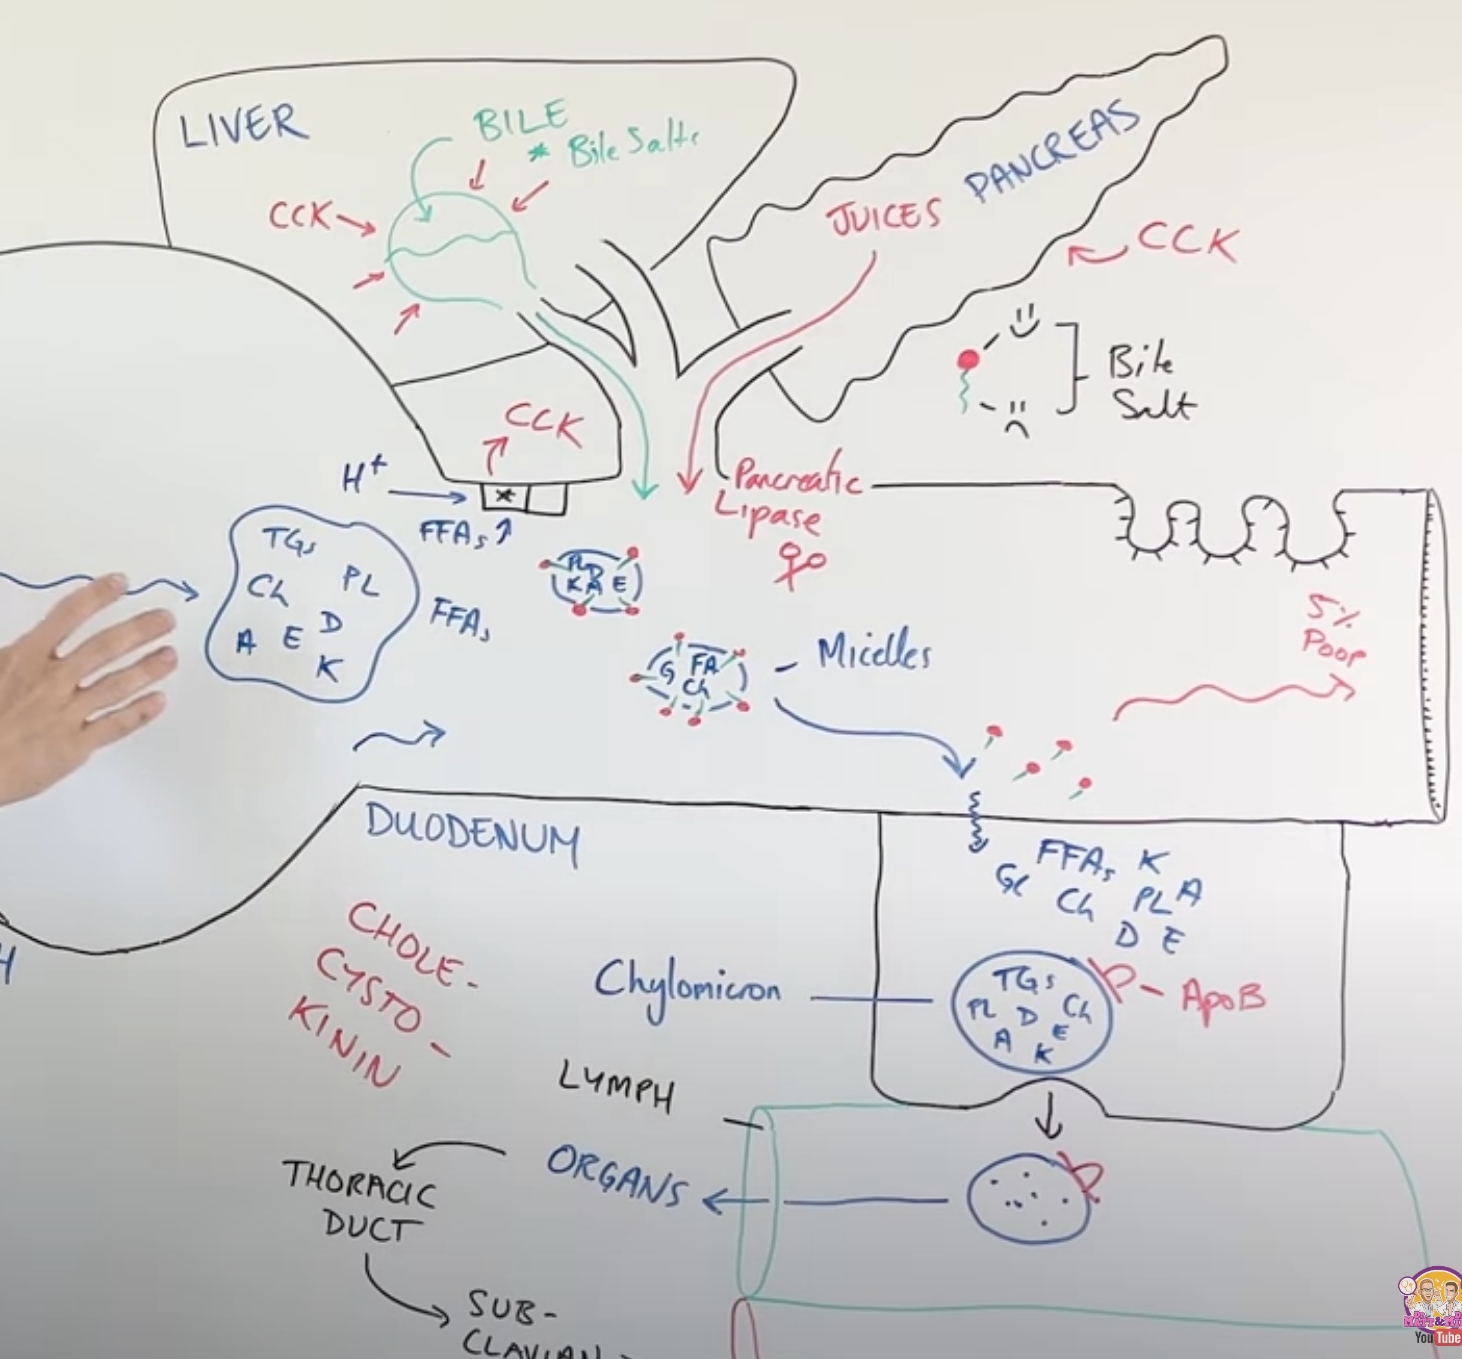 LIVER
BILE
* Bile Salts
CCK
JUICES
PANCREAS
CCK
Bile
Salt
CCK
H+
FFAs ↑
Pancreatic
Lipase
TGs
Ch PL
A E D
K
FFAs
PL D
K A E
G FA
Ch
Micelles
5%
Poop
DUODENUM
CHOLE-
CYSTO-
KININ
FFAs K
Gl Ch PL A
D E
Chylomicron
TGs
PL D Ch
A E
K
ApoB
LYMPH
ORGANS
THORACIC
DUCT
SUB-
CLAVIAN
H
YouTube